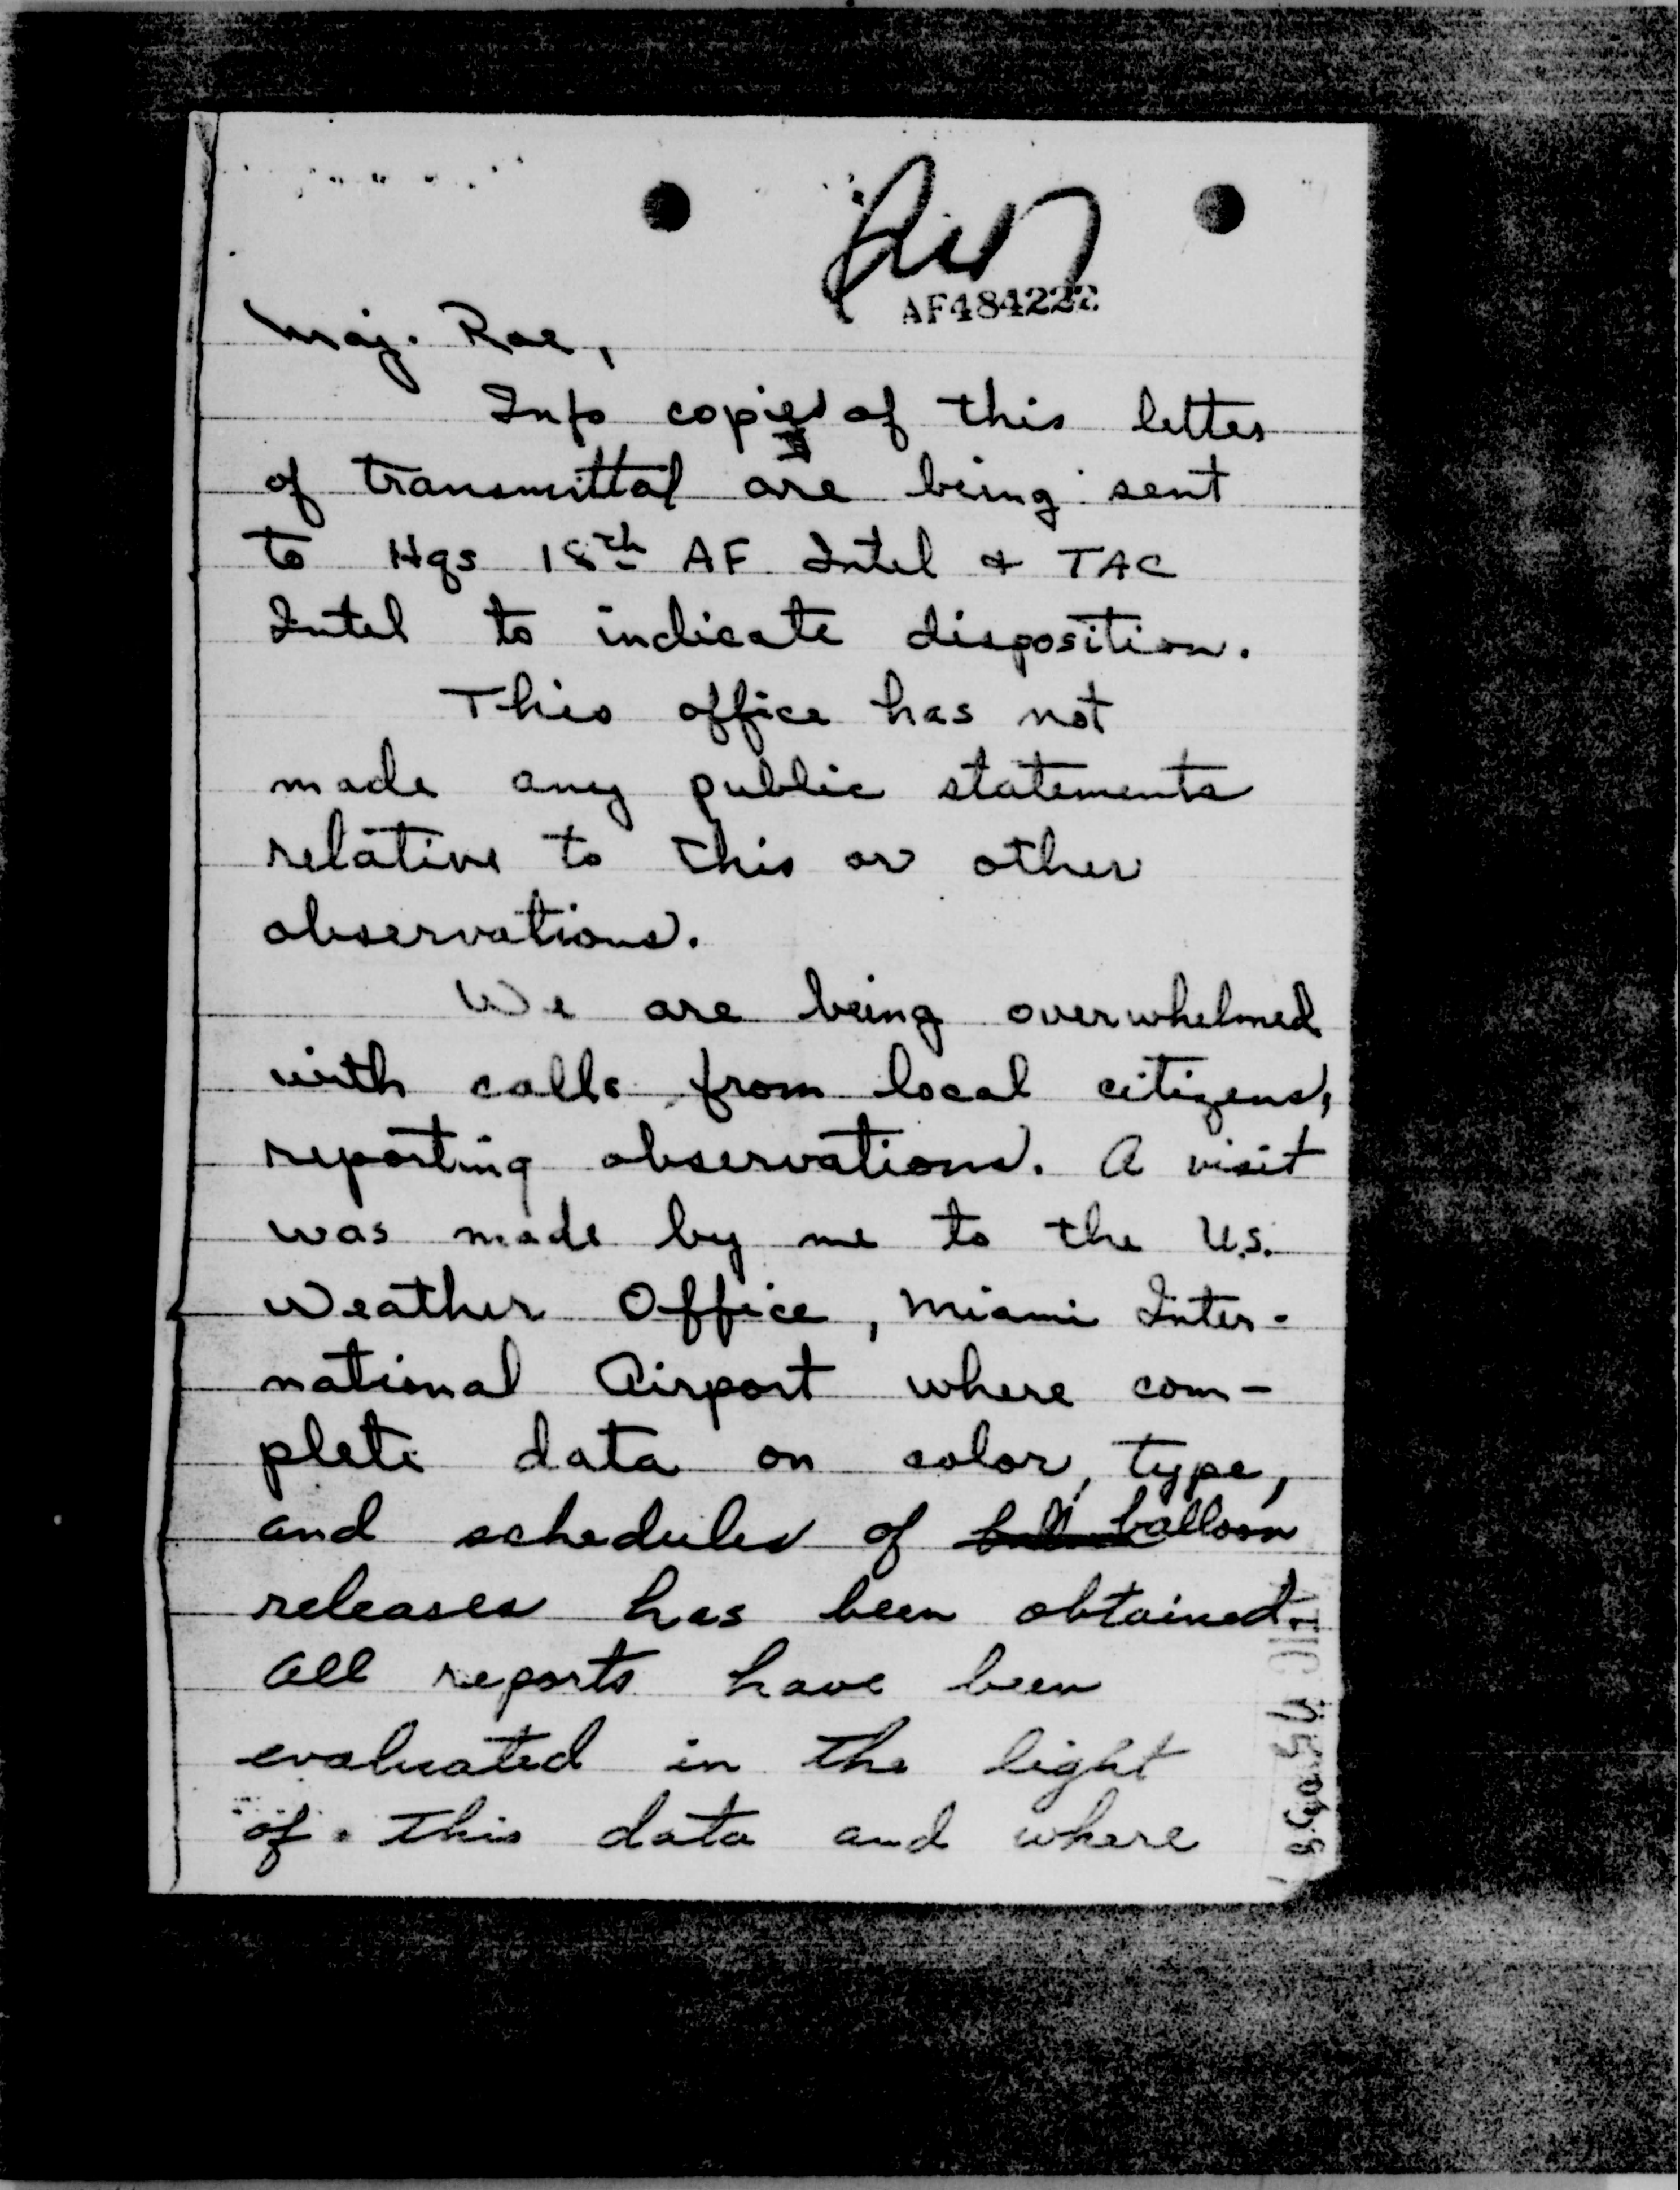 AF484222
Maj. Roe,
Info copies of this letter
of transmittal are being sent
to Hqs 18th AF Intel & TAC
Intel to indicate disposition.
This office has not
made any public statements
relative to this or other
observations.
We are being overwhelmed
with calls from local citizens,
reporting observations. A visit
was made by me to the U.S.
Weather Office, Miami Inter-
national Airport where com-
plete data on color, type,
and schedules of balloon
releases has been obtained.
All reports have been
evaluated in the light
of this data and where